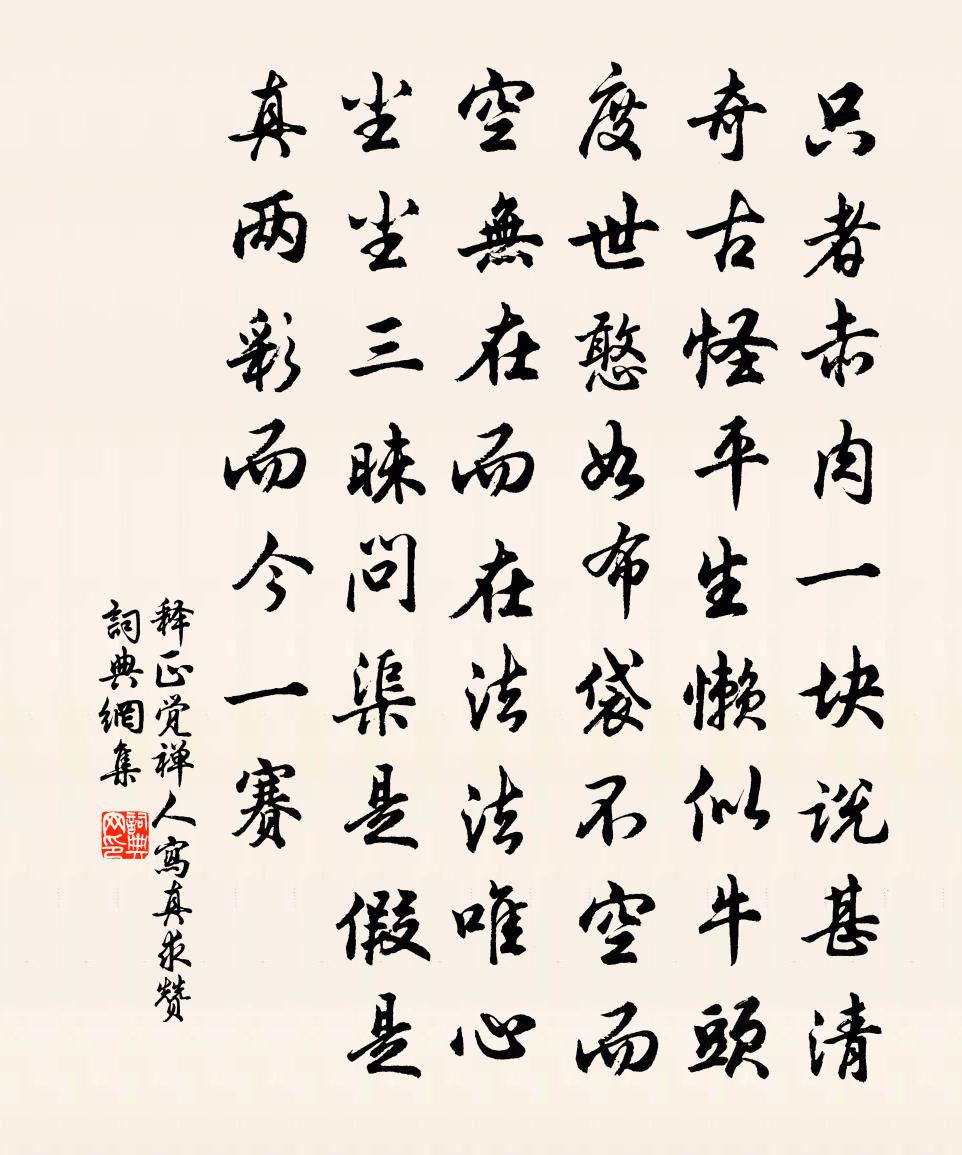 只者赤肉一块说甚清
奇古怪平生懒似牛头
度世憨如布袋不空而
空無在而在法法唯心
尘尘三昧问渠是假是
真两彩而今一赛
释正觉禅人寫真求赞
詞典網集
詞典网印